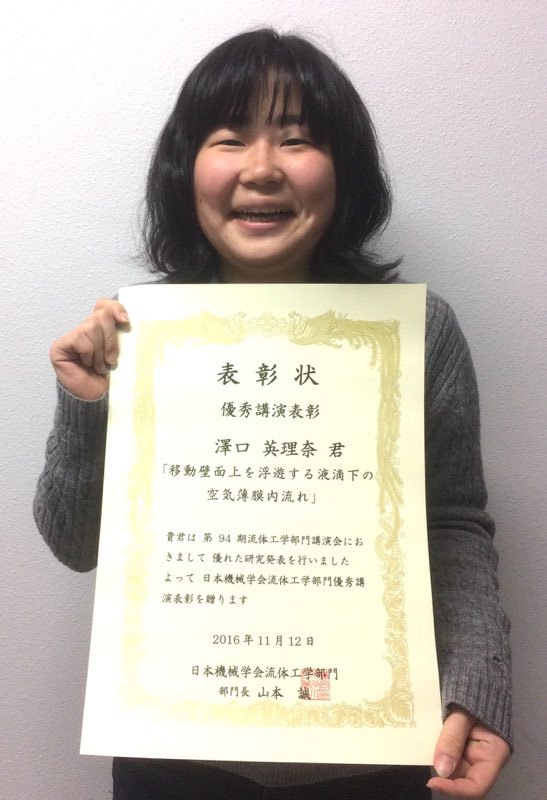 表彰状
優秀講演表彰
澤口 英理奈 君
「移動壁面上を浮遊する液滴下の
空気薄膜内流れ」
貴君は 第 94 期流体工学部門講演会にお
きまして 優れた研究発表を行いました
よって 日本機械学会流体工学部門優秀講
演表彰を贈ります
2016年11月12日
日本機械学会流体工学部門
部門長 山本 誠